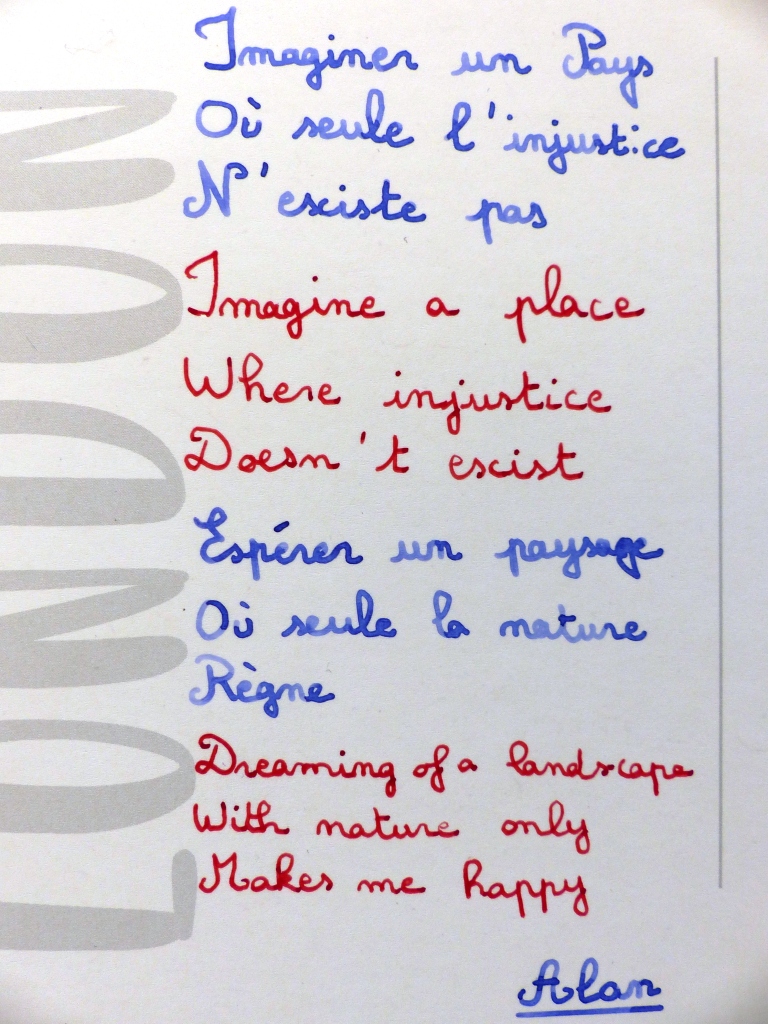 Imaginer un Pays
Où seule l'injustice
N'existe pas
Imagine a place
Where injustice
Doesn't exist
Espérer un paysage
Où seule la nature
Règne
Dreaming of a landscape
With nature only
Makes me happy
Alan
LONDON